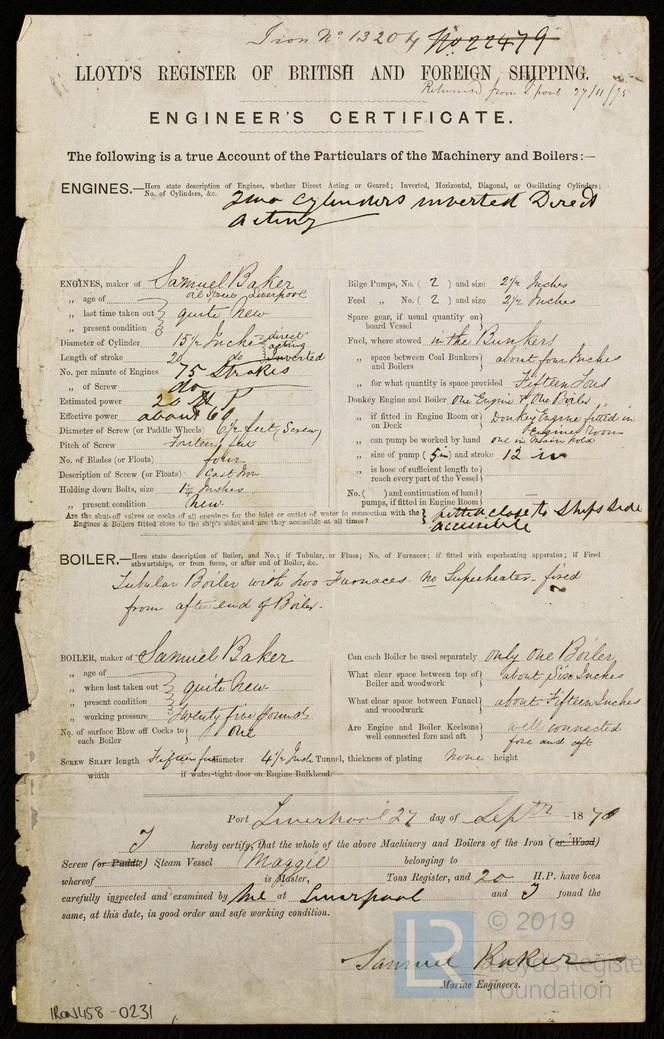 Iron No 13204 No 22479
LLOYD'S REGISTER OF BRITISH AND FOREIGN SHIPPING.
Returned from L'pool 27/11/75
ENGINEER'S CERTIFICATE.
The following is a true Account of the Particulars of the Machinery and Boilers:—
ENGINES.—Here state description of Engines, whether Direct Acting or Geared; Inverted, Horizontal, Diagonal, or Oscillating Cylinders;
No. of Cylinders, &c.
Two Cylinders inverted Direct
Acting
ENGINES, maker of Samuel Baker
oil Street Liverpool
„ age of
„ last time taken out quite New
„ present condition
Diameter of Cylinder 15 1/2 Inches direct
acting
Length of stroke 20 do Inverted
No. per minute of Engines 75 Strokes
„ of Screw do
Estimated power 20 H P
Effective power about 60
Diameter of Screw (or Paddle Wheels) 6 1/2 feet (Screw)
Pitch of Screw Fourteen feet
No. of Blades (or Floats) four
Description of Screw (or Floats) Cast Iron
Holding down Bolts, size 1 1/4 Inches
„ present condition New
Bilge Pumps, No. ( 2 ) and size 2 1/2 Inches
Feed „ No. ( 2 ) and size 2 1/2 Inches
Spare gear, if usual quantity on
board Vessel
Fuel, where stowed in the Bunkers
„ space between Coal Bunkers
and Boilers about four Inches
„ for what quantity is space provided Fifteen Tons
Donkey Engine and Boiler One Engine & One Boiler
„ if fitted in Engine Room or
on Deck Donkey Engine fitted in
Engine Room
„ can pump be worked by hand one in main hold
„ size of pump ( 5 in ) and stroke 12 in
„ is hose of sufficient length to
reach every part of the Vessel
No. ( ) and continuation of hand
pumps, if fitted in Engine Room
Are the shut-off valves or cocks of all openings for the inlet or outlet of water in connection with the
Engines & Boilers fitted close to the ship's sides, and are they accessible at all times?
fitted close to Ships side
accessible
BOILER.—Here state description of Boiler, and No.; if Tubular, or Flues; No. of Furnaces; if fitted with superheating apparatus; if Fired
athwartships, or from force, or after end of Boiler, &c.
Tubular Boiler with two Furnaces no Superheater - fired
from after end of Boiler.
BOILER, maker of Samuel Baker
„ age of
„ when last taken out quite New
„ present condition
„ working pressure Twenty five Pounds
No. of surface Blow off Cocks to
each Boiler one
Can each Boiler be used separately only One Boiler
What clear space between top of
Boiler and woodwork about Six Inches
What clear space between Funnel
and woodwork about Fifteen Inches
Are Engine and Boiler Keelsons
well connected fore and aft well connected
fore and aft
SCREW SHAFT length Fifteen feet diameter 4 1/2 Inch Tunnel, thickness of plating none height
width if water-tight door on Engine Bulkhead.
Port Liverpool 27 day of Septr 1870
I hereby certify, that the whole of the above Machinery and Boilers of the Iron (or Wood)
Screw (or Paddle) Steam Vessel Maggie belonging to
whereof is Master, Tons Register, and 20 H.P. have been
carefully inspected and examined by Me at Liverpool and I found the
same, at this date, in good order and safe working condition.
Samuel Baker
Marine Engineers.
© 2019
Lloyd's Register
Foundation
LR
IRON458-0231